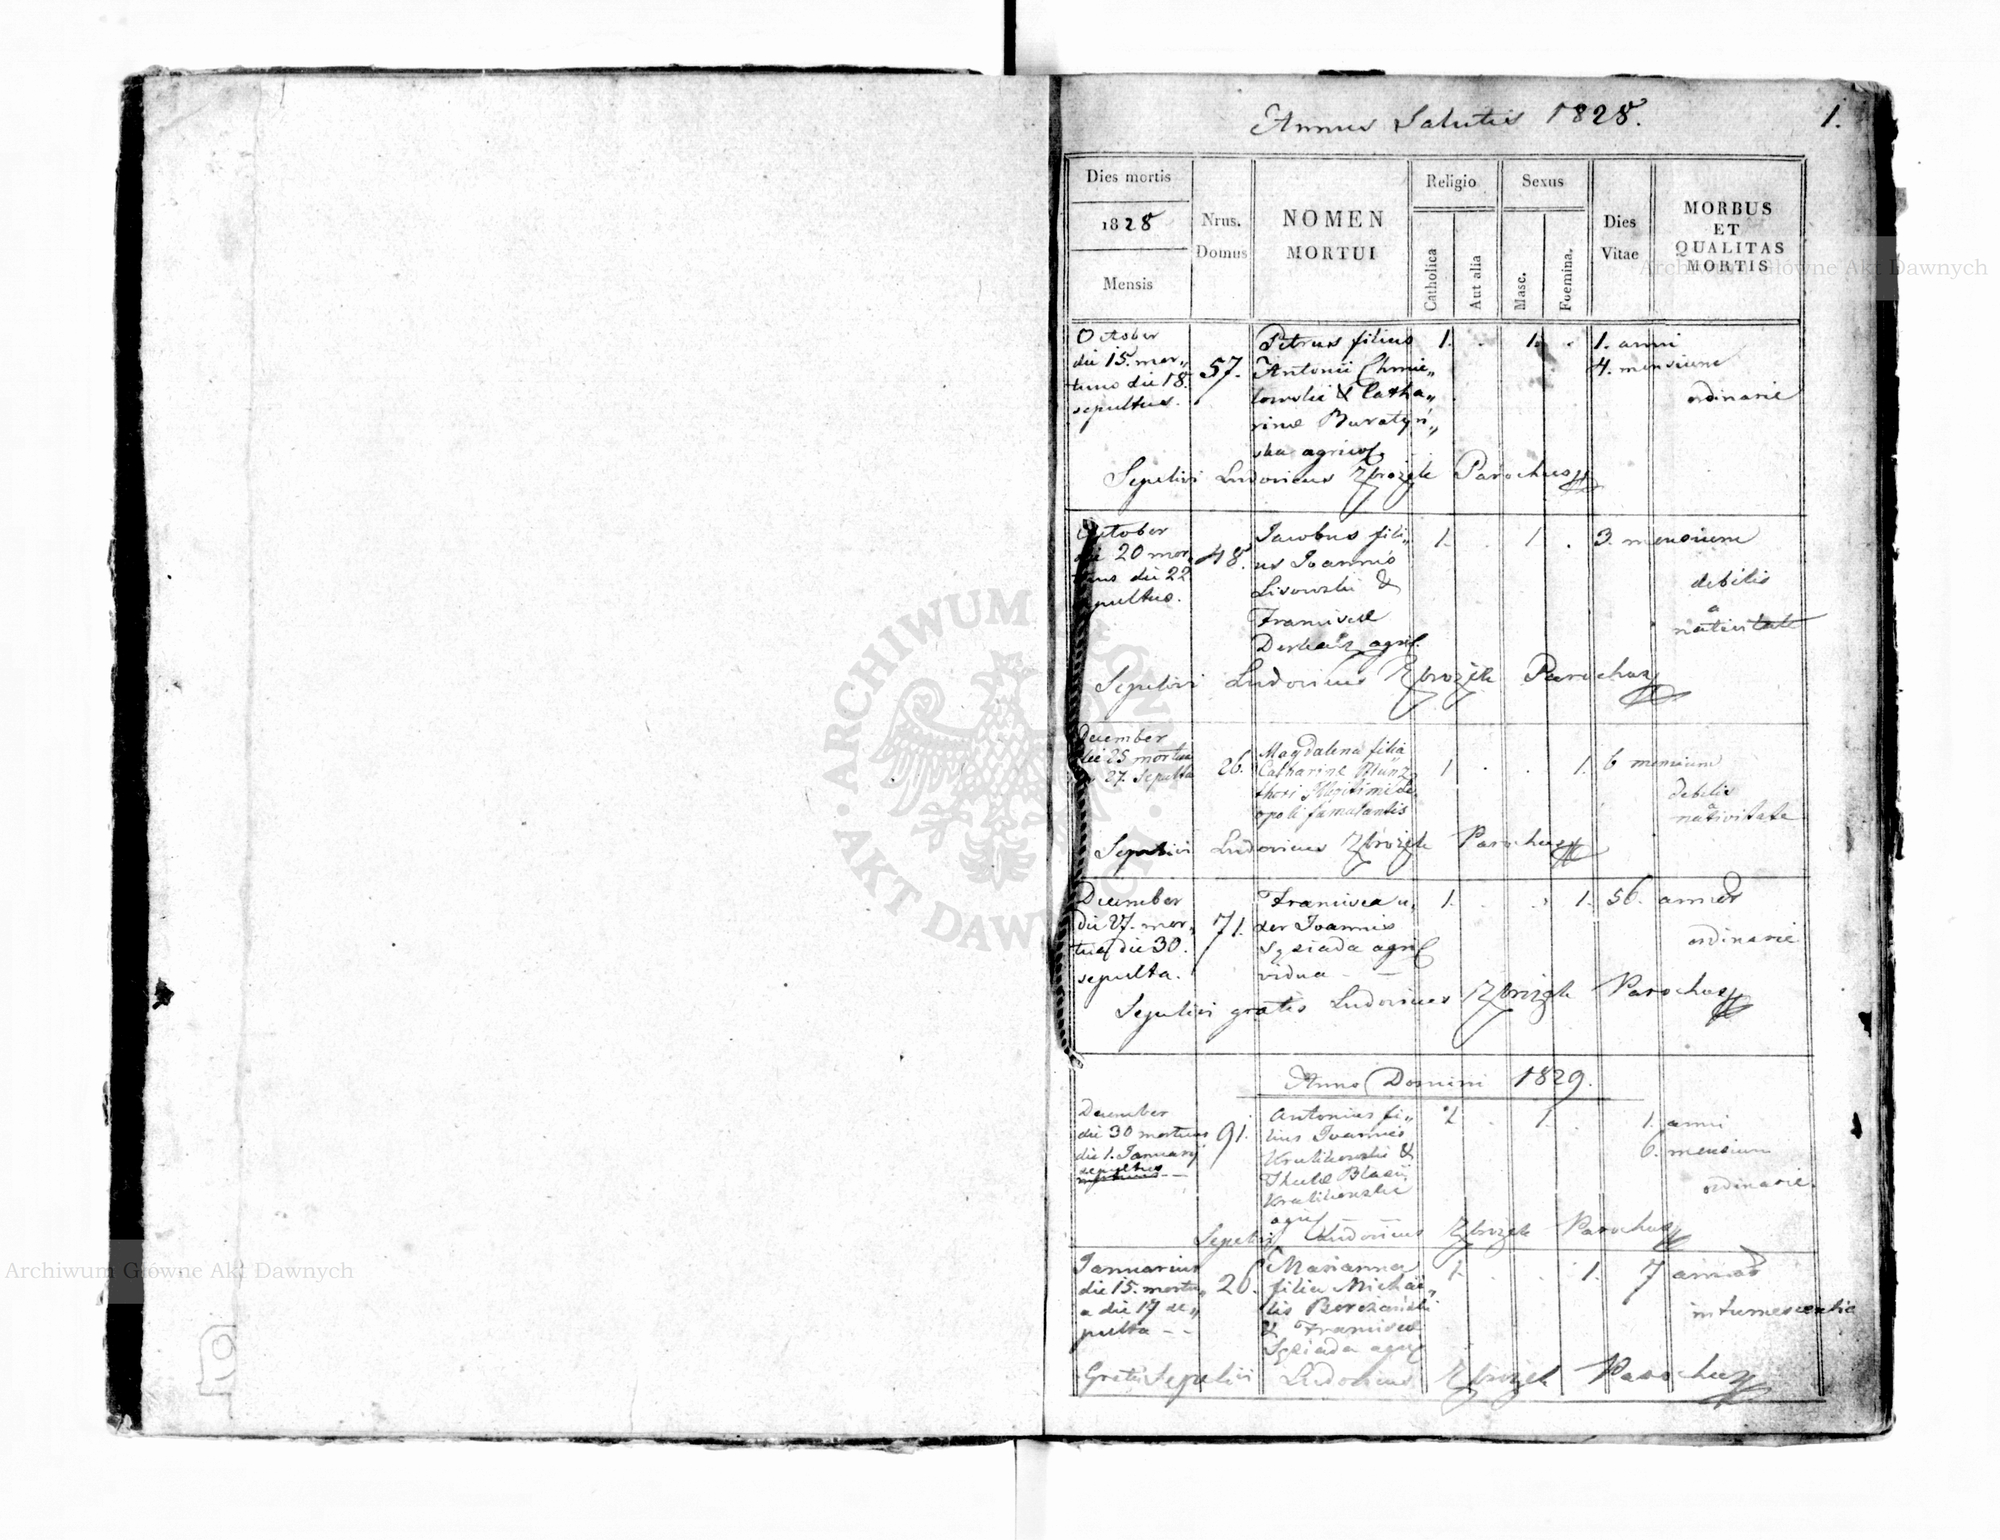 Annus Salutis 1828.
1.
Dies mortis
1828
Mensis
Nrus.
Domus
NOMEN
MORTUI
Religio
Catholica
Aut alia
Sexus
Masc.
Foemina.
Dies
Vitae
MORBUS
ET
QUALITAS
MORTIS
October
die 15. mor„
tuus die 18.
sepultus.
57.
Petrus filius
Antonii Chmie„
lowski & Catha„
rinae Buratyń„
ska agricol.
1. . 1. .
1. anni
4. mensium
ordinarie
Sepelivi Ludovicus Zbrożek Parochus
October
die 20 mor„
tuus die 22
sepultus.
48.
Jacobus fili„
us Joannis
Lisowski &
Franciscae
agric.
1. . 1 .
3. mensium
debilis
a
nativitate
Sepelivi Ludovicus Zbrożek Parochus
December
die 25 mortua
27. sepulta
26.
Magdalena filia
Catharinae
famulantis
1 . . 1.
6 mensium
debilis
a
nativitate
Sepelivi Ludovicus Zbrożek Parochus
December
die 27. mor„
tua die 30.
sepulta.
71.
Francisca u„
xor Joannis
Sąsiada agric
vidua - —
1. . . 1.
56. annor
ordinarie
Sepelivi gratis Ludovicus Zbrożek Parochus
Anno Domini 1829.
December
die 30 mortuus
die 1. Januarij
sepultus
91.
Antonius fi„
lius Joannis
Krulikowski &
Theclae Blasii
Krulikowski
agric
1. . 1. .
1. anni
6. mensium
ordinarie.
Sepelivi Ludovicus Zbrożek Parochus
Januarius
die 15. mortu„
a die 17 se„
pulta - -
26.
Marianna
filia Michae„
lis Berezański
& Franciscae
Sąsiada agric
1. . . 1.
7 annor
intumescentia
Gratis Sepelivi Ludovicus Zbrożek Parochus
ARCHIWUM GŁÓWNE AKT DAWNYCH
Archiwum Główne Akt Dawnych
Archiwum Główne Akt Dawnych